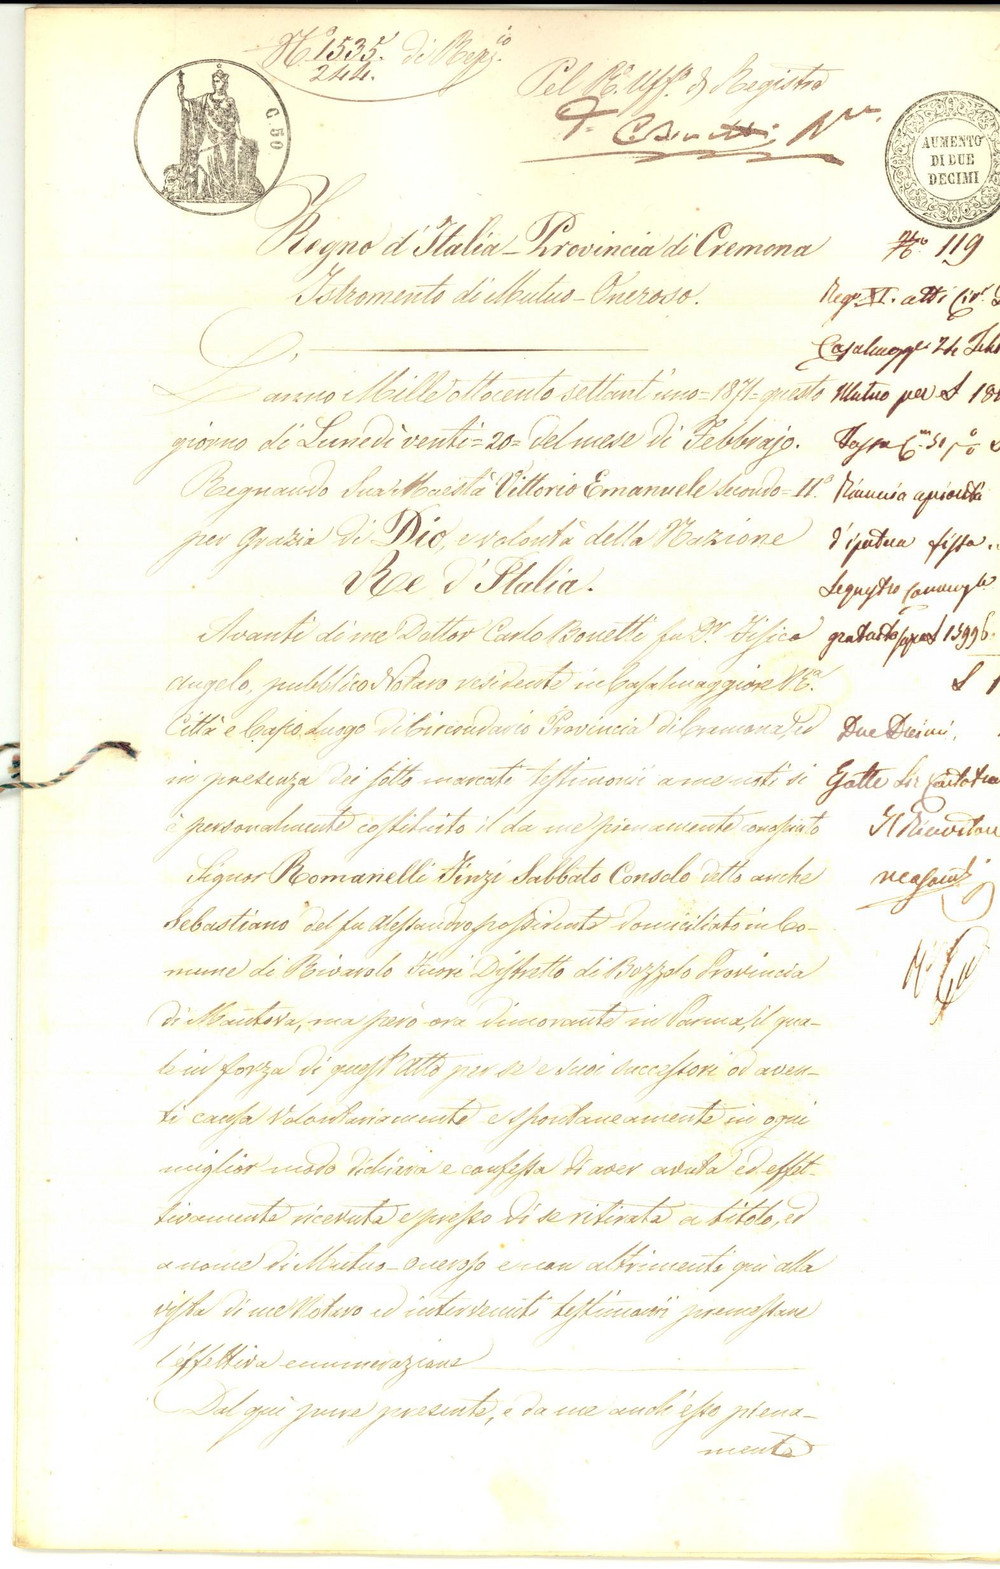 N.° 1535. di Rep.io
244.
Pel R.° Uff.° di Registro
C. 50
AUMENTO
DI DUE
DECIMI
Regno d'Italia - Provincia di Cremona
Istromento di Mutuo - Oneroso.
L'anno Mille ottocento settant'uno = 1871 = questo
giorno di Lunedì venti = 20 = del mese di Febbrajo.
Regnando Sua Maestà Vittorio Emanuele Secondo = II.°
per grazia di Dio, e volontà della Nazione
Re d'Italia.
Avanti di me Dottor Carlo Bonetti fu D.r Fisico
Angelo, pubblico Notaro residente in Casalmaggiore R.a
Città e Capo Luogo di Circondario Provincia di Cremona, ed
in presenza dei sotto marcati testimonii a me noti si
è personalmente costituito il da me pienamente conosciuto
Signor Romanelli Finzi Sabbato Consolo detto anche
Sebastiano del fu Alessandro possidente domiciliato in Co-
mune di Rivarolo Fuori Distretto di Bozzolo Provincia
di Mantova, ma però ora dimorante in Parma, il qua-
le in forza di quest'atto per se e suoi successori od aven-
ti causa volontariamente e spontaneamente in ogni
miglior modo dichiara e confessa di aver avuta ed effet-
tivamente ricevuta e presso di se ritirata a titolo, ed
a nome di Mutuo - oneroso e non altrimenti quì alla
vista di me Notaro ed intervenuti testimonii premessane
l'effettiva enumerazione
Dal quì pure presente, e da me anch'esso piena-
mente
N.° 119
Reg.° VI. atti Civ.i
Casalmagg.e 24 Feb
Mutuo per £ 18
Tassa C.mi 50 p. %
Rinuncia
d'ipoteca fissa
£ 1
Due Decimi.
Il Ricevitore